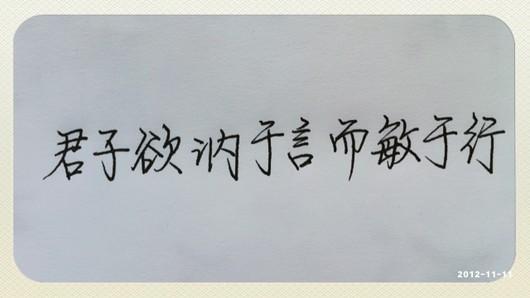 君子欲讷于言而敏于行
2012-11-11